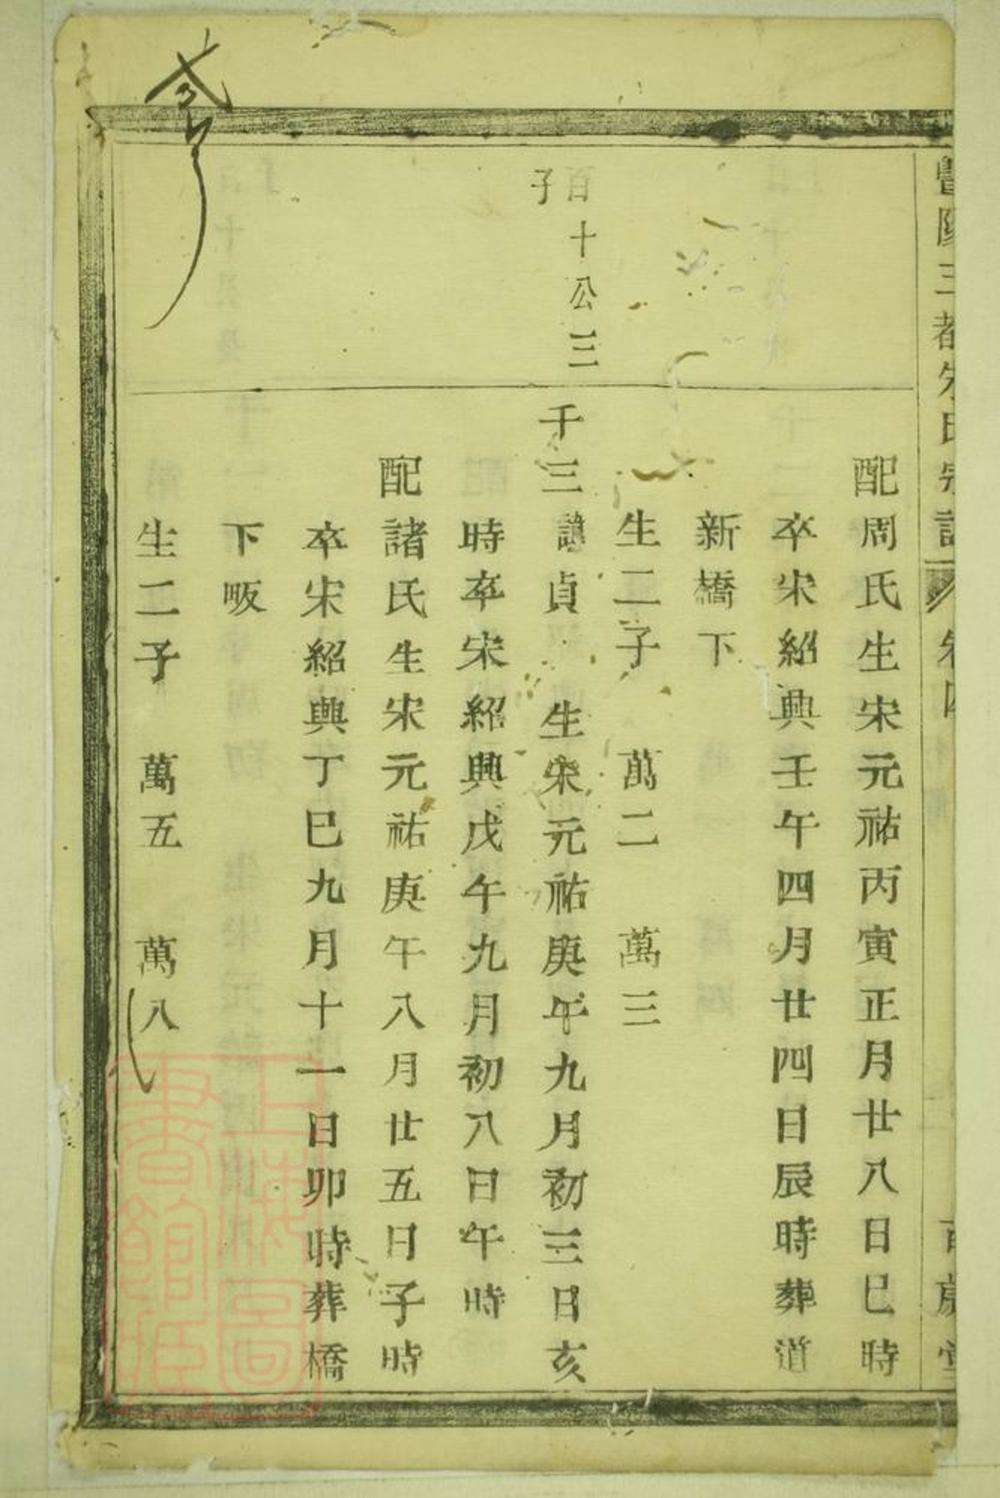 配周氏生宋元祐丙寅正月廿八日巳時
卒宋紹興壬午四月廿四日辰時葬道
新橋下
生二子 萬二 萬三
百十公三
子
千三諱貞 生宋元祐庚午九月初三日亥
時卒宋紹興戊午九月初八日午時
配諸氏生宋元祐庚午八月廿五日子時
卒宋紹興丁巳九月十一日卯時葬橋
下畈
生二子 萬五 萬八
上海圖
書館